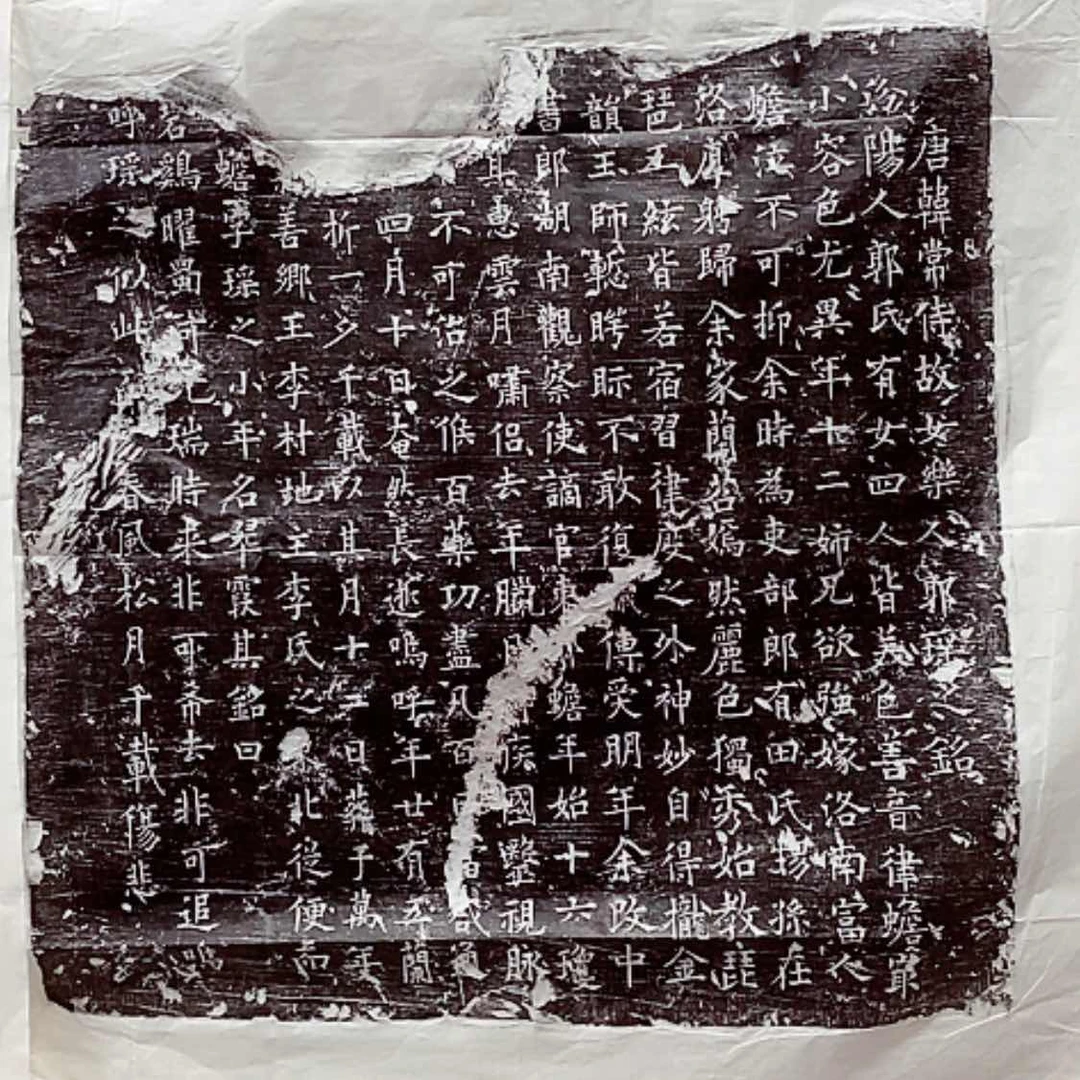 唐韓常侍故女樂人郭瑤之銘
汾陽人郭氏有女四人皆美色善音律蟾寔
小容色尤異年十二姊兄欲強嫁洛南富人
蟾泣不可抑余時為吏部郎有田氏楊孫在
洛身歸余家蘭嫣然麗色獨秀始教琵
琶玉絃皆若宿習律度之外神妙自得攏金
韻玉師聽眄眎不敢復傳受朋年余改中
書郎湖南觀察使謫官東蟾年始十六瓊
其惠雲月嘯侶去年臘月疾國毉視脉
不可治之候百藥功盡凡百
四月十日奄然長逝嗚呼年廿有五蘭
折一夕千載以其月十三日葬于萬年
善鄉王李村地主李氏之北從便而
蟾字瑤之小年名翠霞其銘曰
若鷄曜瑞時来非可希去非可追嗚
呼瑤之似此春風松月千載傷悲